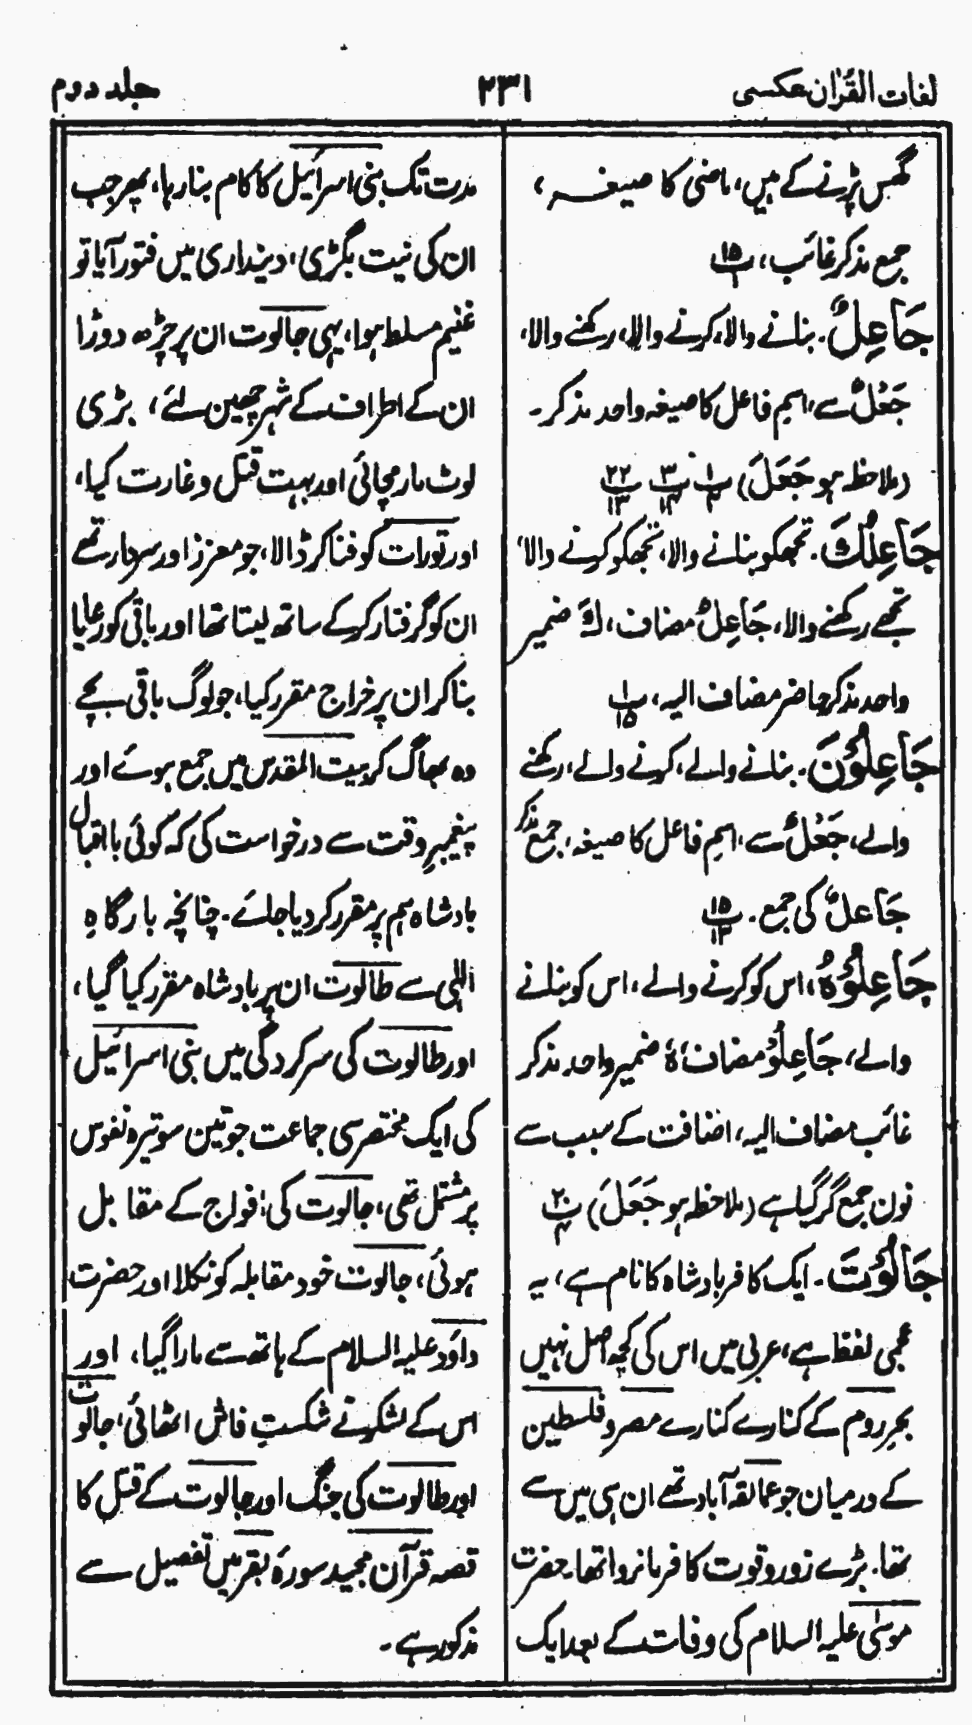 لغات القرآن عکسی
۲۳۱
جلد دوم
گھس پڑنے کے ہیں، ماضی کا صیغہ،
جمع مذکر غائب، پ ۱۵ ۱
جَاعِلٌ. بنانے والا، کرنے والا، رکھنے والا،
جَعْلٌ سے، اسم فاعل کا صیغہ واحد مذکر۔
(ملاحظہ ہو جَعَلَ) پ ۱ پ ۳ پ ۲۲ ۱۳
جَاعِلُكَ. تجھکو بنانے والا، تجھکو کرنے والا،
تجھے رکھنے والا، جَاعِلُ مضاف، كَ ضمیر
واحد مذکر حاضر مضاف الیہ، پ ۱ ۱۵
جَاعِلُوْنَ. بنانے والے، کرنے والے، رکھنے
والے، جَعْلٌ سے، اسم فاعل کا صیغہ، جمع مذکر
جَاعِلٌ کی جمع. پ ۱۵ ۱۳
جَاعِلُوْهُ، اس کو کرنے والے، اس کو بنانے
والے، جَاعِلُوْ مضاف، هُ ضمیر واحد مذکر
غائب مضاف الیہ، اضافت کے سبب سے
نون جمع گر گیا ہے (ملاحظہ ہو جَعَلَ) پ ۲۰
جَالُوْتَ. ایک کافر بادشاہ کا نام ہے، یہ
عجمی لفظ ہے، عربی میں اس کی کچھ اصل نہیں
بحر روم کے کنارے کنارے مصر و فلسطین
کے درمیان جو عمالقہ آباد تھے ان ہی میں سے
تھا. بڑے زور و قوت کا فرمانروا تھا. حضرت
موسٰی علیہ السلام کی وفات کے بعد ایک
مدت تک بنی اسرائیل کا کام بنا رہا، پھر جب
ان کی نیت بگڑی، دینداری میں فتور آیا تو
غنیم مسلط ہوا، یہی جالوت ان پر چڑھ دوڑا
ان کے اطراف کے شہر چھین لئے، بڑی
لوٹ مار مچائی اور بہت قتل و غارت کیا،
اور تورات کو فنا کر ڈالا، جو معزز اور سردار تھے
ان کو گرفتار کر کے ساتھ لیتا تھا اور باقی کو رعایا
بنا کر ان پر خراج مقرر کیا، جو لوگ باقی بچے
وہ بھاگ کر بیت المقدس میں جمع ہوئے اور
پیغمبر وقت سے درخواست کی کہ کوئی با اقبال
بادشاہ ہم پر مقرر کر دیا جائے. چنانچہ بارگاہِ
الٰہی سے طالوت ان پر بادشاہ مقرر کیا گیا،
اور طالوت کی سرکردگی میں بنی اسرائیل
کی ایک مختصر سی جماعت جو تین سو تیرہ نفوس
پر مشتمل تھی، جالوت کی افواج کے مقابل
ہوئی، جالوت خود مقابلہ کو نکلا اور حضرت
داؤد علیہ السلام کے ہاتھ سے مارا گیا، اور
اس کے لشکر نے شکستِ فاش اٹھائی، جالوت
اور طالوت کی جنگ اور جالوت کے قتل کا
قصہ قرآن مجید سورۂ بقر میں تفصیل سے
مذکور ہے۔